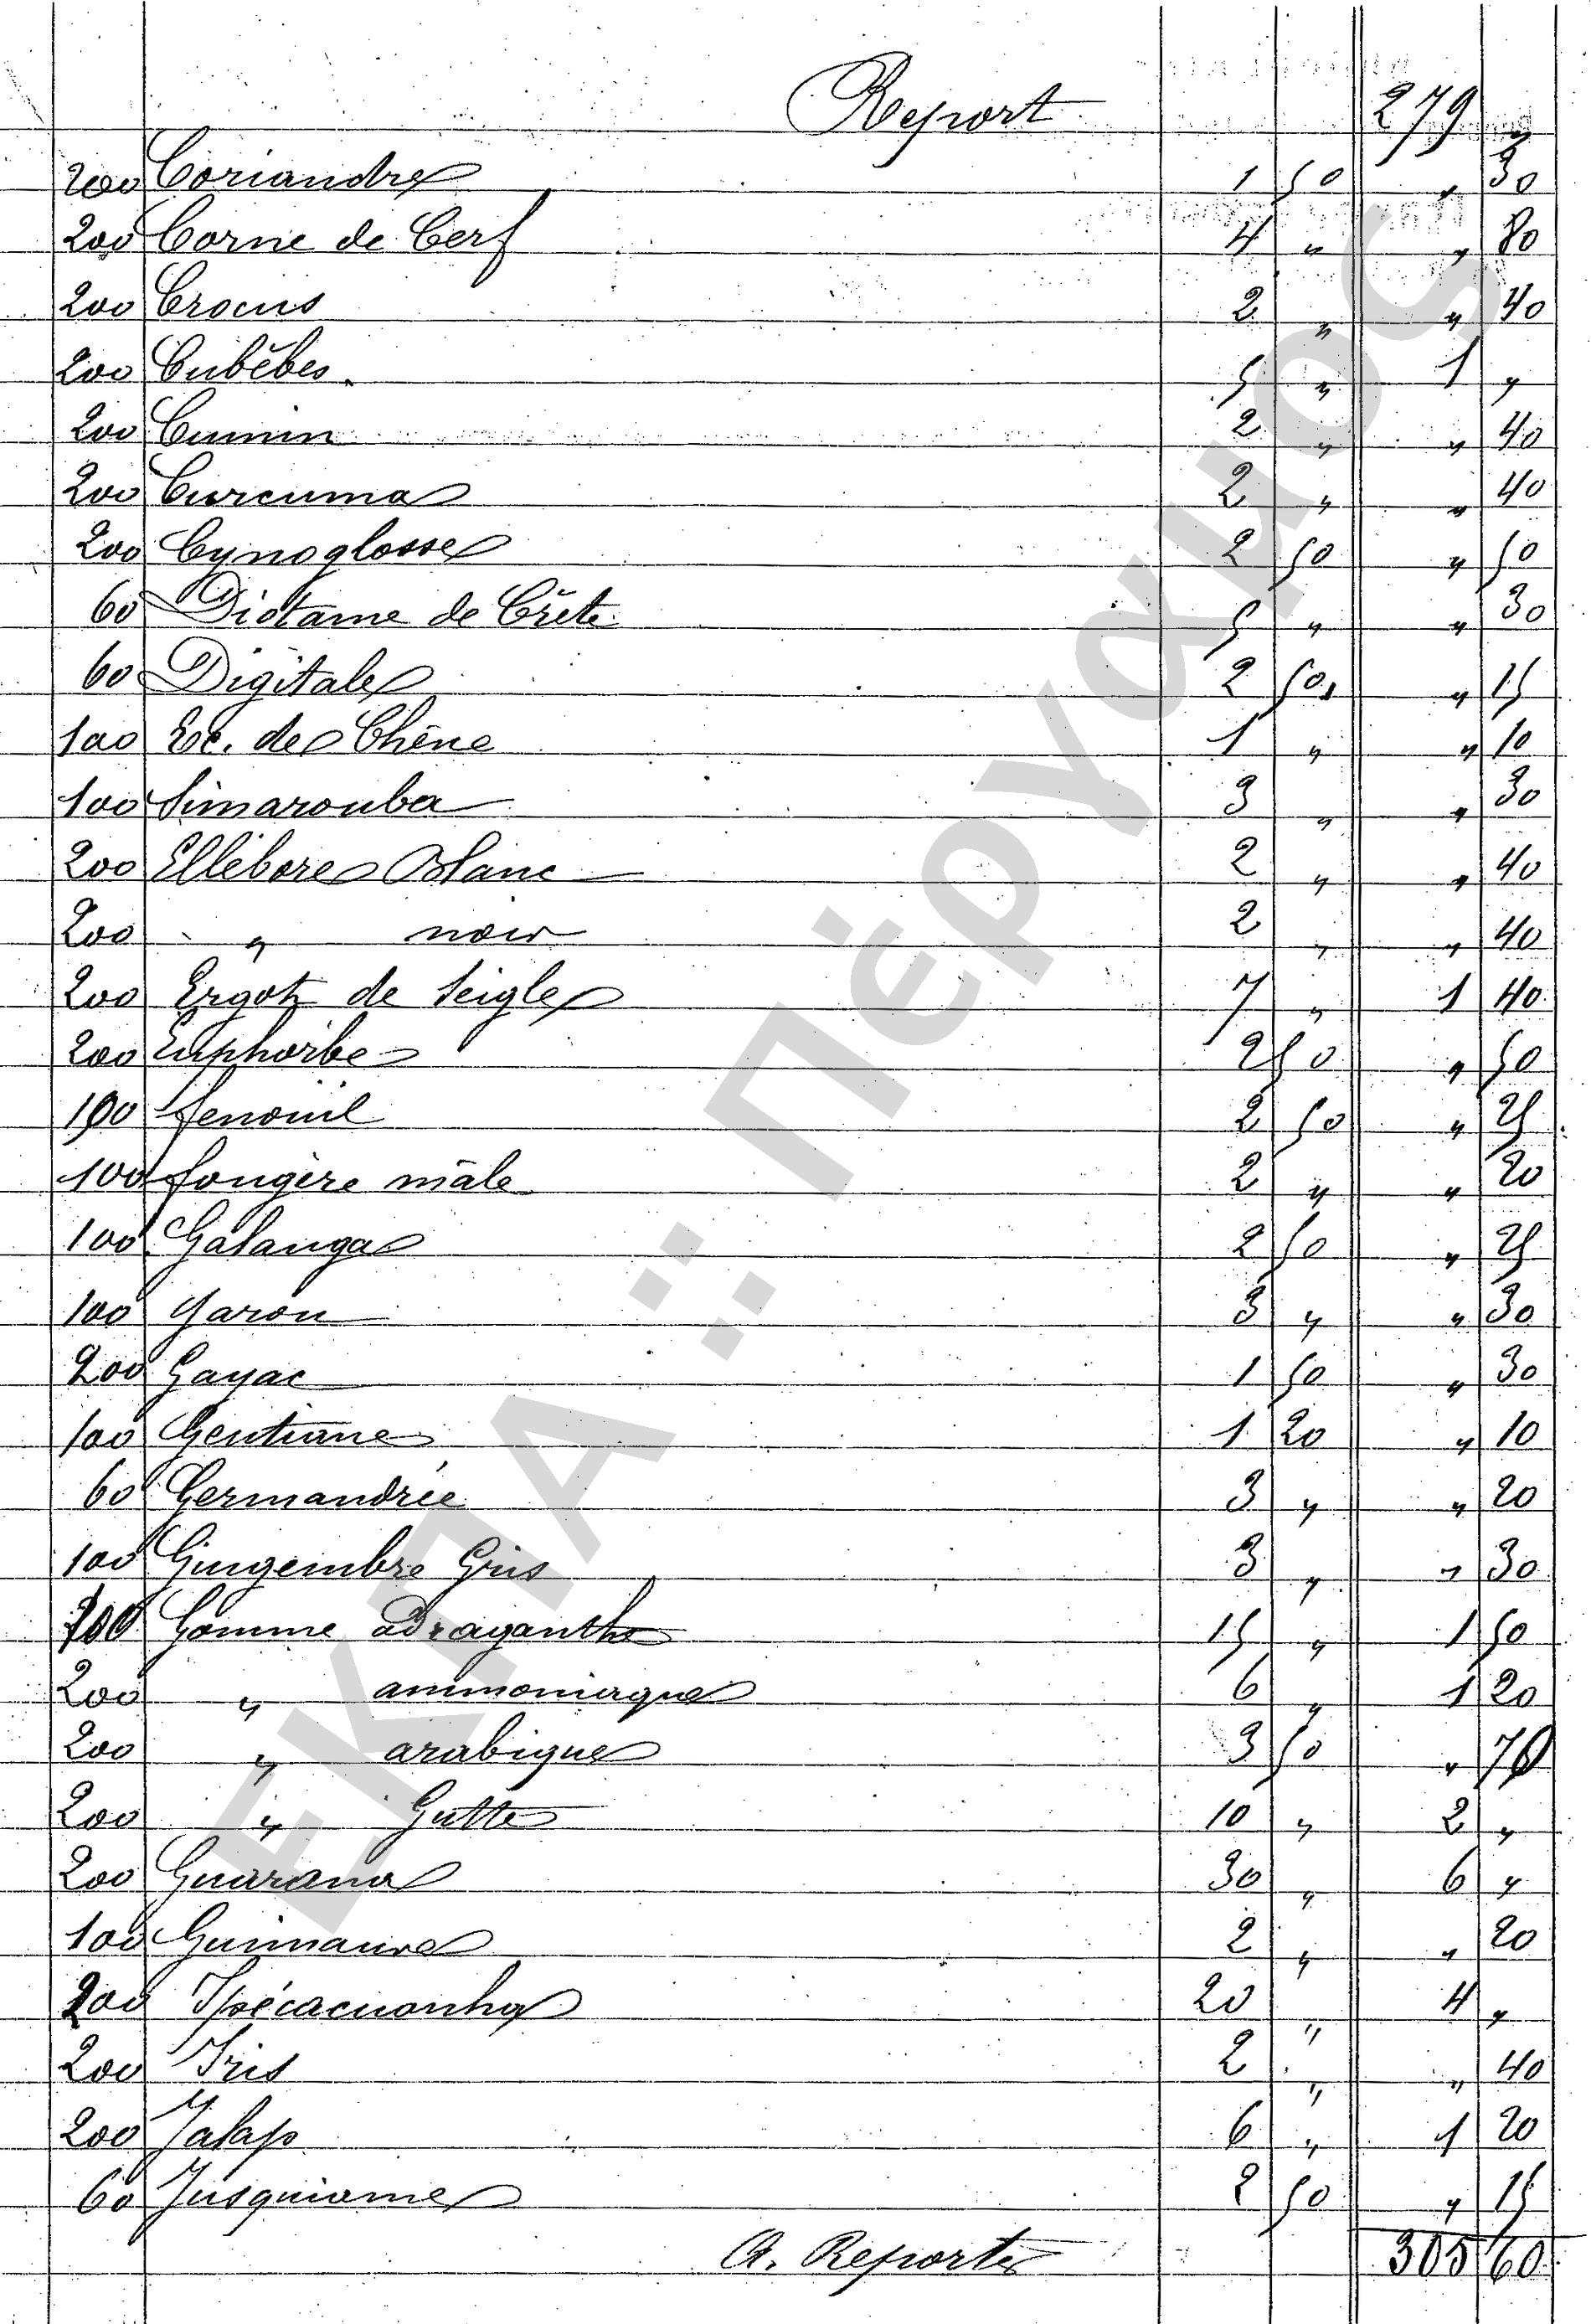 Report 279 "
200 Coriandre 1 50 " 30
200 Corne de Cerf 4 " " 80
200 Crocus 2 " " 40
200 Cubèbes. 5 " 1 "
200 Cumin 2 " " 40
200 Curcuma 2 " " 40
200 Cynoglosse 2 50 " 50
60 Dictame de Crète 5 " " 30
60 Digitale 2 50 " 15
100 Ec. de Chêne 1 " " 10
100 Simarouba 3 " " 30
200 Ellébore Blanc 2 " " 40
200 " noir 2 " " 40
200 Ergot de Seigle 7 " 1 40
200 Euphorbe 2 50 " 50
100 fenouil 2 50 " 25
100 fougère mâle 2 " " 20
100 Galanga 2 50 " 25
100 Garou 3 " " 30
200 Gayac 1 50 " 30
100 Gentiane 1 20 " 10
60 Germandrée 3 " " 20
100 Gingembre Gris 3 " " 30
100 Gomme adraganthe 15 " 1 50
200 " ammoniaque 6 " 1 20
200 " arabique 3 50 " 70
200 " Gutte 10 " 2 "
200 Guarana 30 " 6 "
100 Guimauve 2 " " 20
200 Ipécacuanha 20 " 4 "
200 Iris 2 " " 40
200 Jalap 6 " 1 20
60 Jusquiame 2 50 " 15
A. Reporter 305 60
ΕΚΠΑ :: Πέργαμος